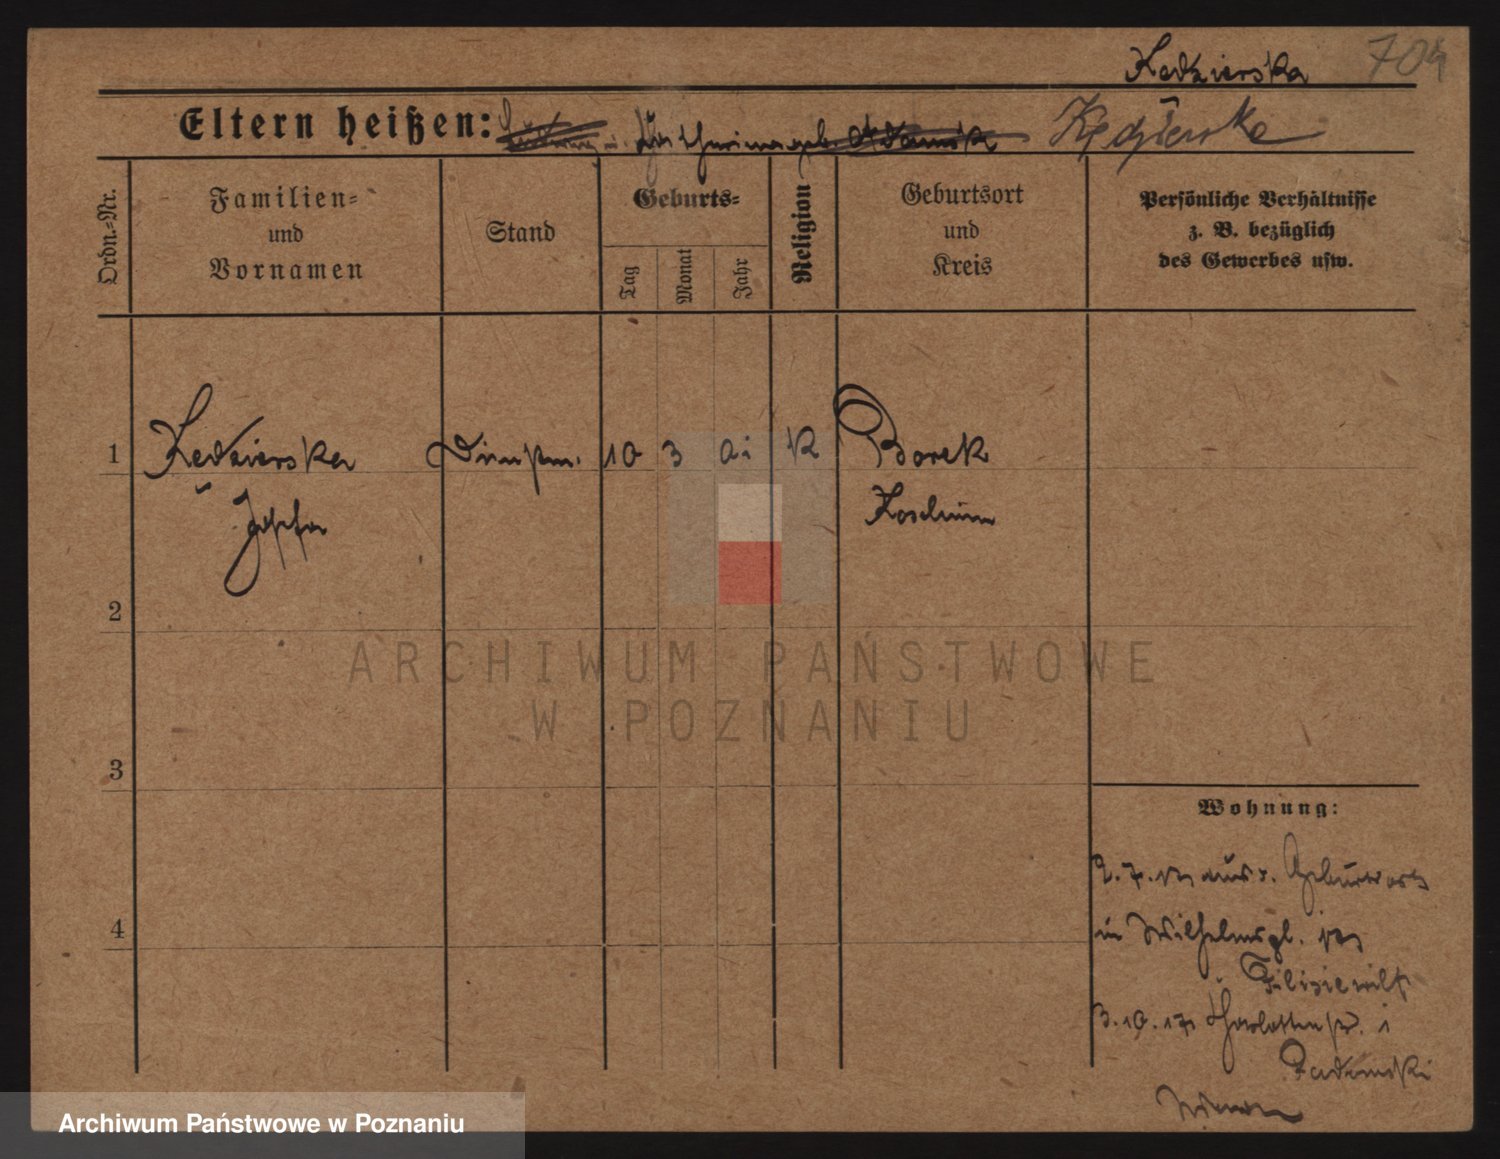 Kedzierska 704
Eltern heißen: geb. Adamska Kędzierska
Ordn.-Nr.
Familien-
und
Vornamen
Stand
Geburts-
Tag
Monat
Jahr
Religion
Geburtsort
und
Kreis
Persönliche Verhältnisse
z. B. bezüglich
des Gewerbes usw.
1 Kedzierska Dienstm. 10 3 K Borek
Josefa Koschmin
2
ARCHIWUM PAŃSTWOWE
W POZNANIU
3
Wohnung:
2.7. aus d. Geburtsort
4
in Wilhelmspl.
3.10.17 Charlottenstr. 1
Archiwum Państwowe w Poznaniu